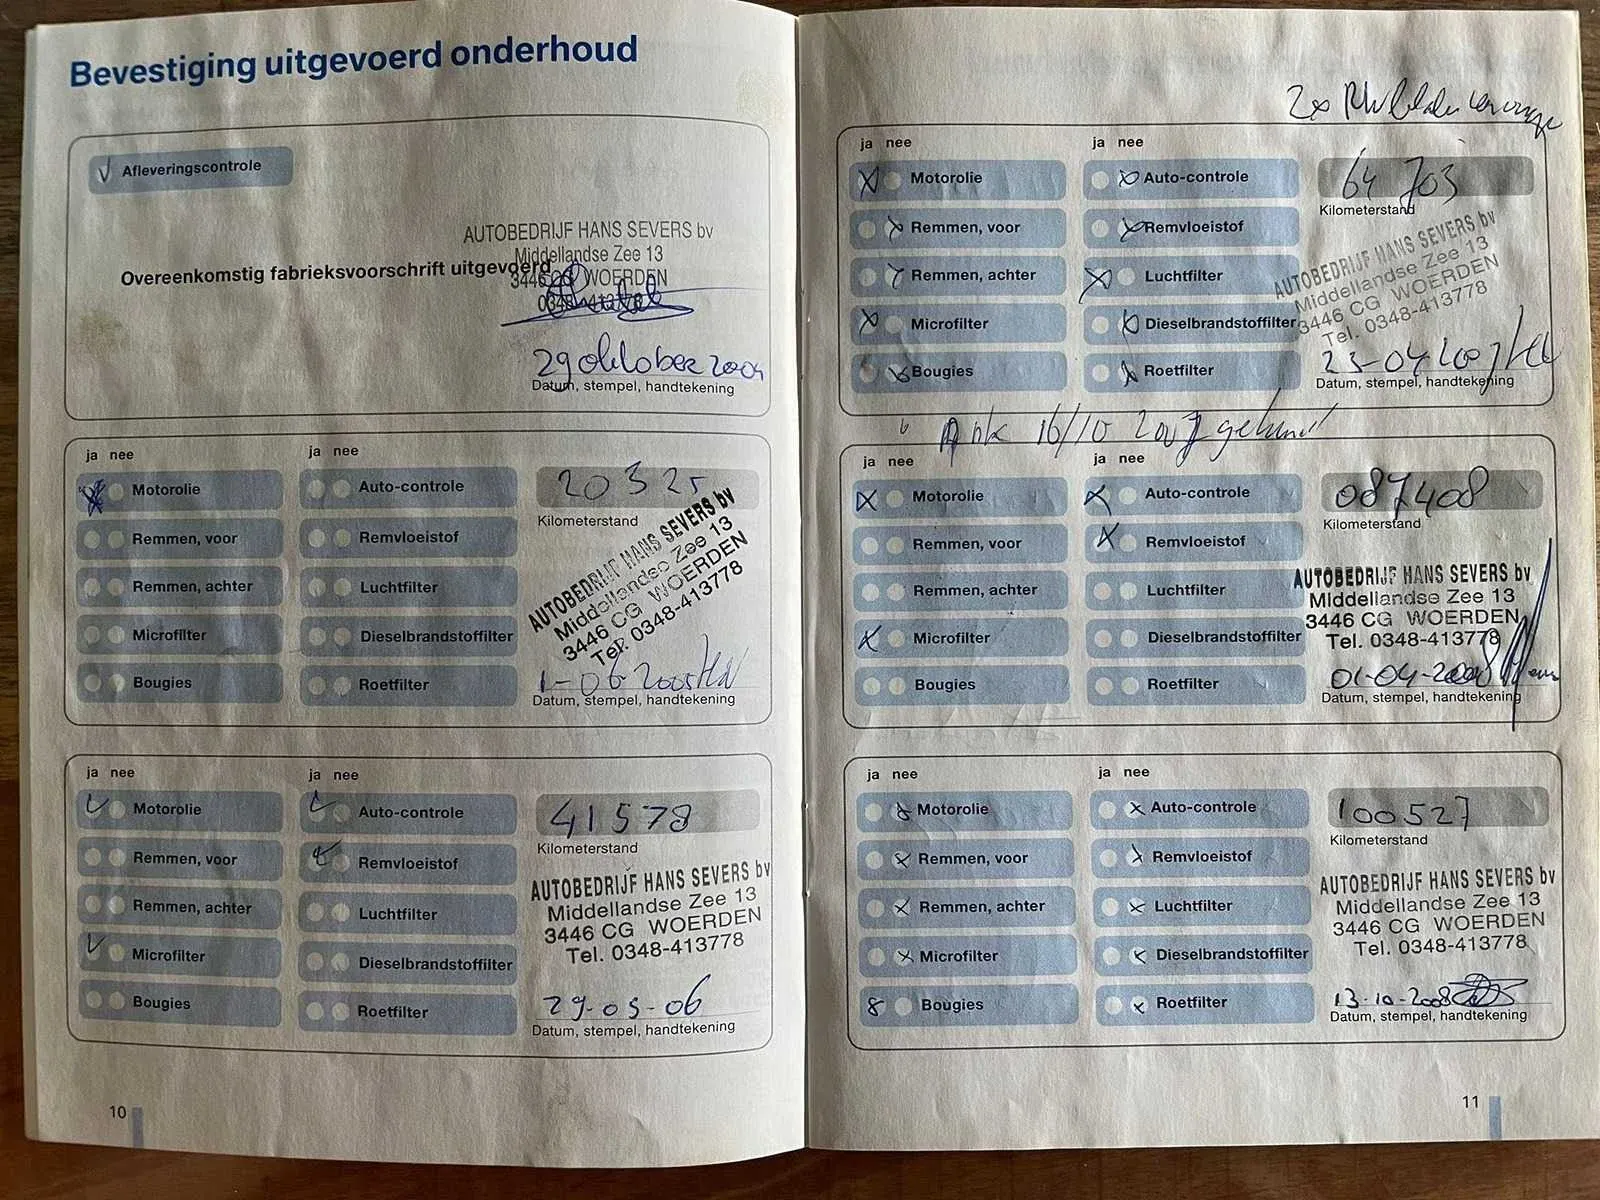 Bevestiging uitgevoerd onderhoud
Afleveringscontrole
Overeenkomstig fabrieksvoorschrift uitgevoerd
AUTOBEDRIJF HANS SEVERS bv
Middellandse Zee 13
3446 CG WOERDEN
0348-413778
29 oktober 2004
Datum, stempel, handtekening
ja nee ja nee
Motorolie Auto-controle
Remmen, voor Remvloeistof
Remmen, achter Luchtfilter
Microfilter Dieselbrandstoffilter
Bougies Roetfilter
20325
Kilometerstand
AUTOBEDRIJF HANS SEVERS bv
Middellandse Zee 13
3446 CG WOERDEN
Tel. 0348-413778
1-06-2005
Datum, stempel, handtekening
ja nee ja nee
Motorolie Auto-controle
Remmen, voor Remvloeistof
Remmen, achter Luchtfilter
Microfilter Dieselbrandstoffilter
Bougies Roetfilter
41578
Kilometerstand
AUTOBEDRIJF HANS SEVERS bv
Middellandse Zee 13
3446 CG WOERDEN
Tel. 0348-413778
29-03-06
Datum, stempel, handtekening
10
2x
ja nee ja nee
Motorolie Auto-controle
Remmen, voor Remvloeistof
Remmen, achter Luchtfilter
Microfilter Dieselbrandstoffilter
Bougies Roetfilter
64703
Kilometerstand
AUTOBEDRIJF HANS SEVERS bv
Middellandse Zee 13
3446 CG WOERDEN
Tel. 0348-413778
23-04-2007
Datum, stempel, handtekening
16/10 2007
ja nee ja nee
Motorolie Auto-controle
Remmen, voor Remvloeistof
Remmen, achter Luchtfilter
Microfilter Dieselbrandstoffilter
Bougies Roetfilter
087408
Kilometerstand
AUTOBEDRIJF HANS SEVERS bv
Middellandse Zee 13
3446 CG WOERDEN
Tel. 0348-413778
01-04-2008
Datum, stempel, handtekening
ja nee ja nee
Motorolie Auto-controle
Remmen, voor Remvloeistof
Remmen, achter Luchtfilter
Microfilter Dieselbrandstoffilter
Bougies Roetfilter
100527
Kilometerstand
AUTOBEDRIJF HANS SEVERS bv
Middellandse Zee 13
3446 CG WOERDEN
Tel. 0348-413778
13-10-2008
Datum, stempel, handtekening
11